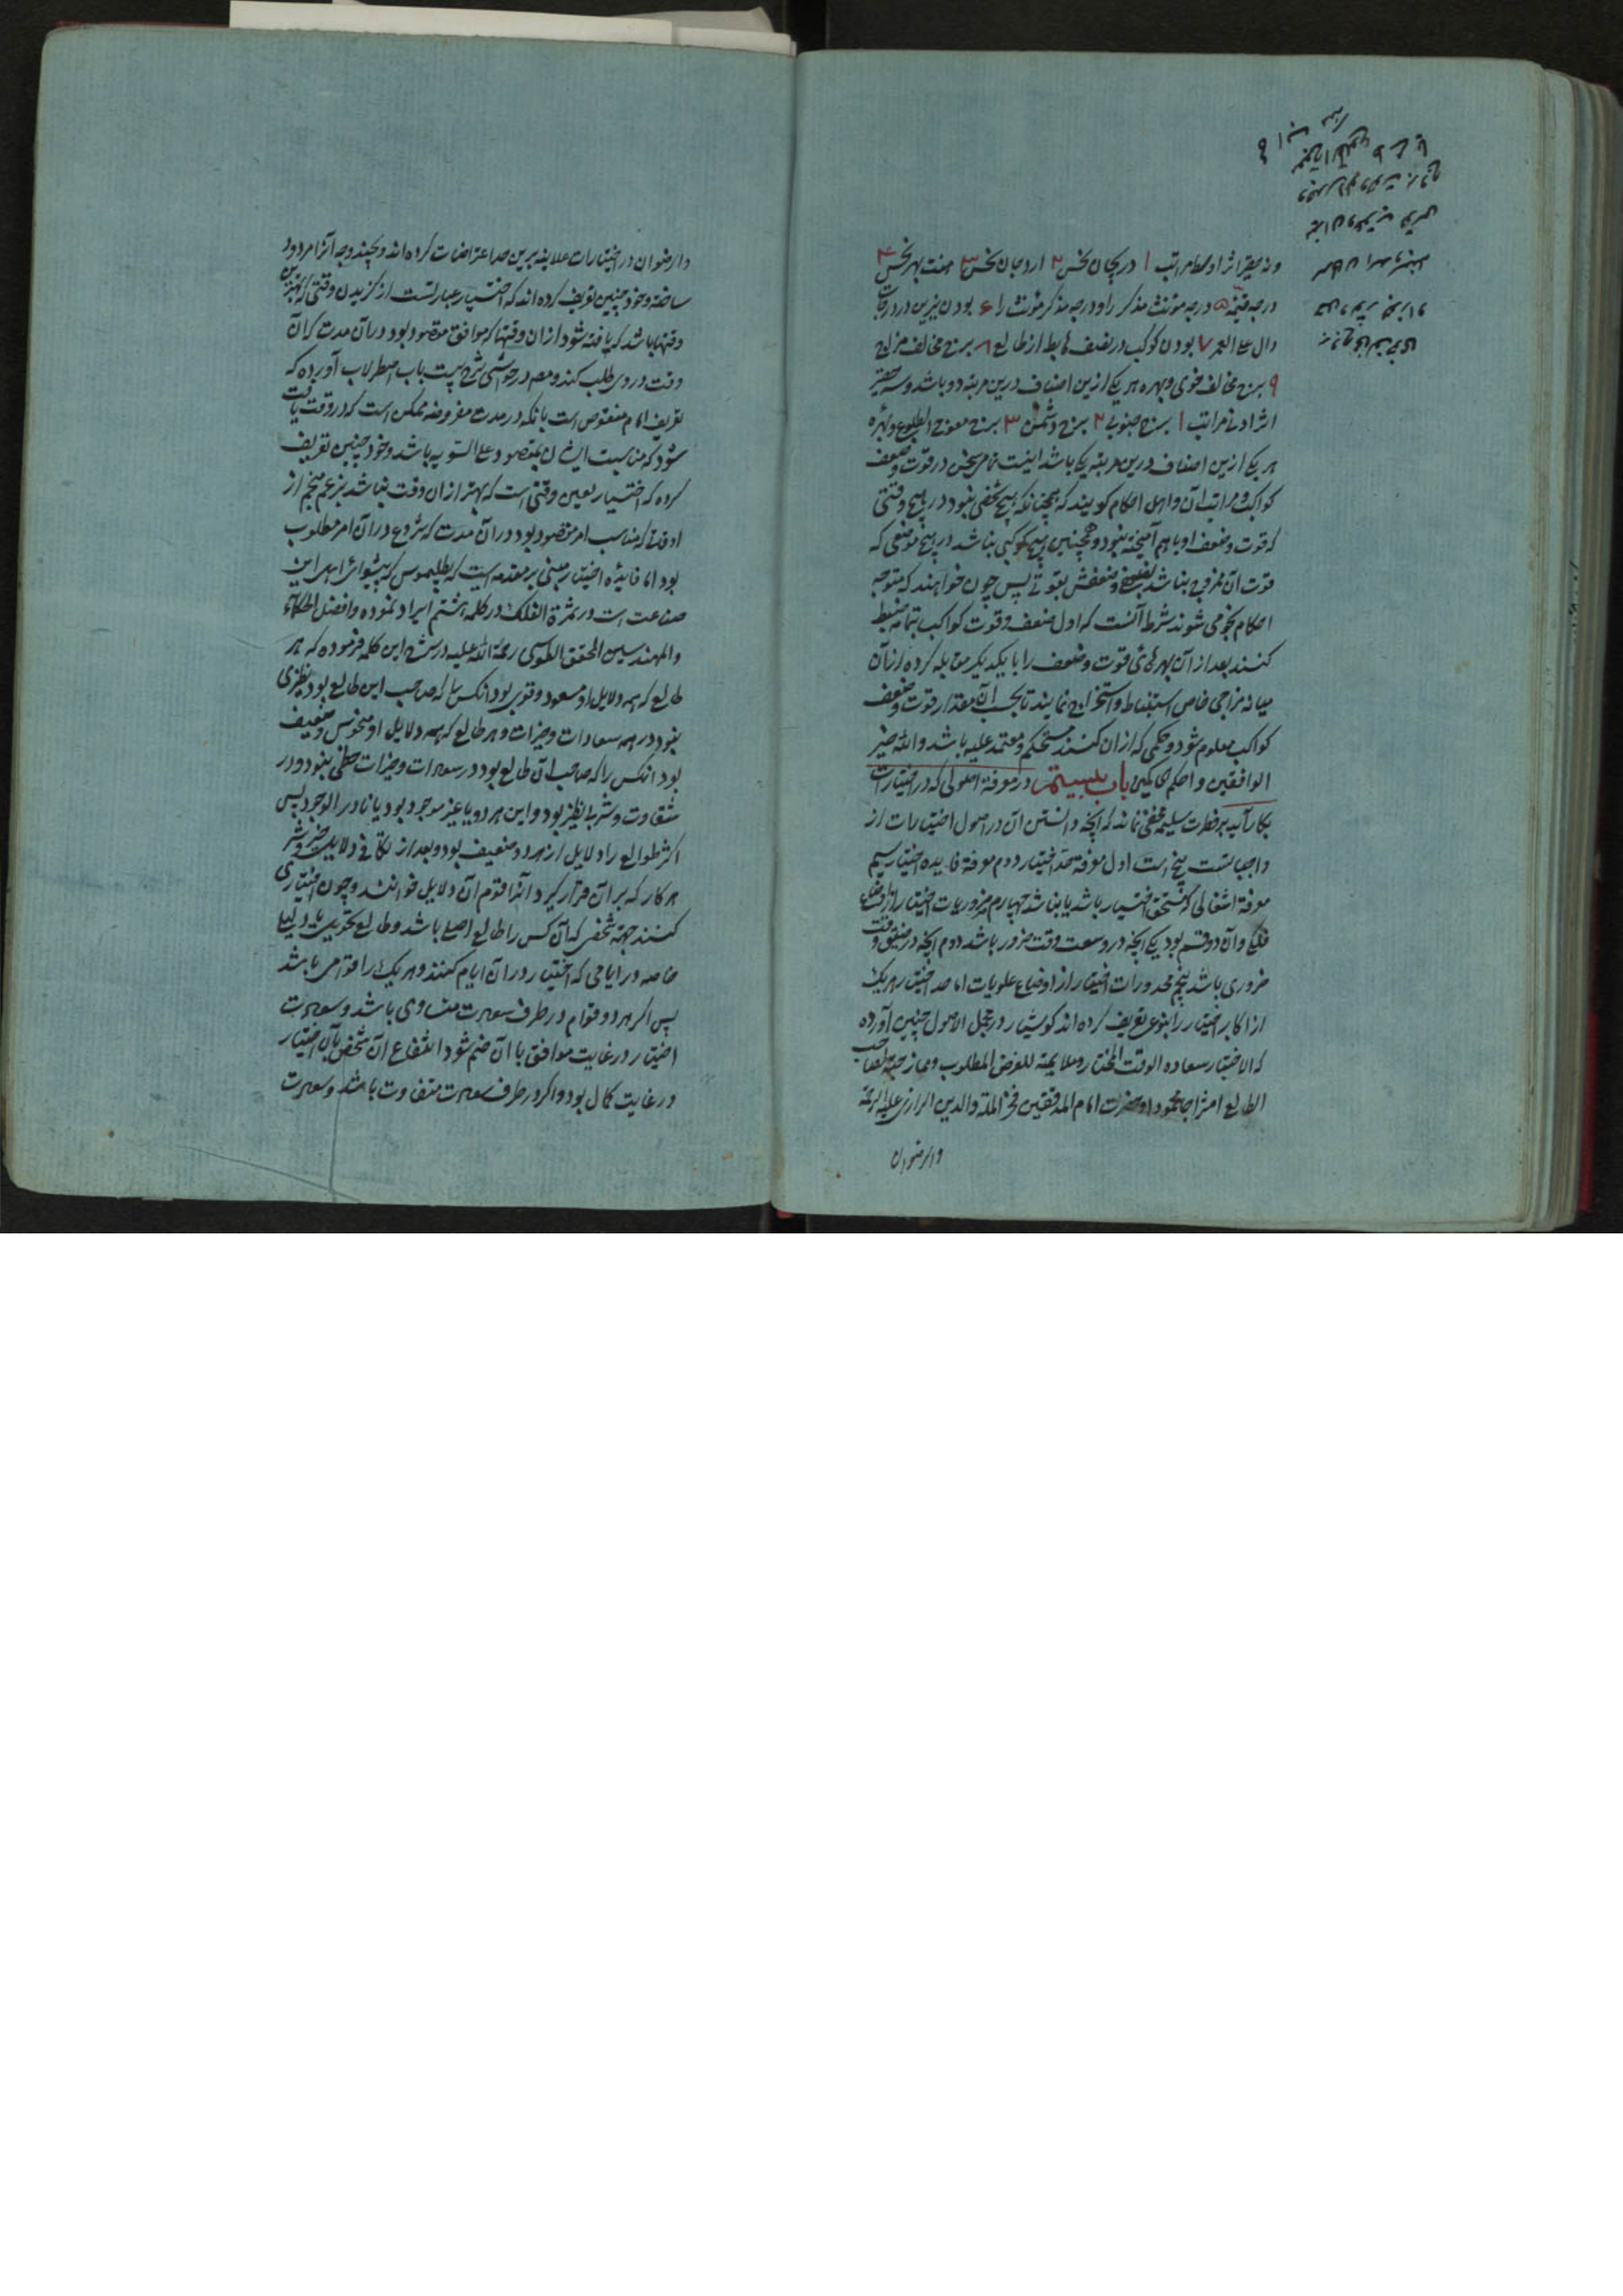 اثر اوسط مراتب ۱ دریجان نحس ۲ اردجان نحس ۳ بهر نحس ۴
درجه قتمه ۵ درجه مؤنث مذکر را و درجه مذکر مؤنث را ۶ بودن نیرین در درجات
دال علی العمر ۷ بودن کوکب در نصف هابط از طالع ۸ برج مخالف مزاج
۹ برج مخالف خوی و بهره هر یکی ازین اصناف درین مرتبه دو باشد و سه حقیر
اثر ادنی مراتب ۱ برج جنوبی ۲ برج دشمن ۳ برج معوج الطلوع و بهره
هر یکی ازین اصناف درین مرتبه یکی باشد اینست تمام سخن در قوت و ضعف
کواکب و مراتب آن و اهل احکام کویند که همچنانکه هیچ شخصی نبود در هیچ وقتی
که قوت و ضعف او باهم آمیخته نبود و همچنین هیچ کوکبی نباشد در هیچ موضعی که
قوت آن ممزوج نباشد بضعفی و ضعفش بقوتی پس چون خواهند که متوجه
احکام نجومی شوند شرط آنست که اول ضعف و قوت کواکب بتمامه ضبط
کنند بعد از آن بهرهای قوت و ضعف را با یکدیکر مقابله کرده از آن
میانه مزاجی خاص استنباط و استخراج نمایند تا بحسب آن مقدار قوت و ضعف
کواکب معلوم شود و حکمی که از آن کنند مستحکم و معتمد علیه باشد والله خیر
الوافقین و احکم الحاکمین باب بیستم در معرفة اصولی که در اختیارات
بکار آید بر فطرت سلیمه مخفی نماند که آنچه دانستن آن در اصول اختیارات از
واجباتست پنج است اول معرفة حد اختیار دوم معرفة فایده اختیار سیم
معرفة اشغالی که مستحق اختیار باشد یا نباشد چهارم ضروریات اختیار از اوضاع
فلکی و آن دو قسم بود یکی آنچه در وسعت وقت ضرور باشد دوم آنچه در ضیق وقت
ضروری باشد پنجم محذورات اختیار از اوضاع علویات اما حد اختیار هر یک
از اکابر اختیار را بنوع تعریف کرده اند کوشیار در مجمل الاصول چنین آورده
که الاختیار سعادة الوقت المختار و ملایمته للغرض المطلوب و ممازجته لصاحب
الطالع امتزاجا محمودا و حضرت امام المدققین فخر الملة والدین الرازی علیه الرحمة
والرضوان
والرضوان در اختیارات علائیه برین حد اعتراضات کرده اند و بچند وجه آنرا مردود
ساخته و خود چنین تعریف کرده اند که اختیار عبارتست از کزیدن وقتی که بهترین
وقتها باشد که یافته شود از آن وقتها که موافق مقصود بود در آن مدت که آن
وقت در وی طلب کند و مصم در حواشی شرح بیست باب اصطرلاب آورده که
تعریف امام منقوص است بانکه در مدت مفروضه ممکن است که دو وقت یافت
شود که مناسبت ایشان بمقصود علی السویه باشد و خود چنین تعریف
کرده که اختیار تعیین وقتی است که بهتر از آن وقت نباشد بزعم منجم از
اوقاتی که مناسب امر مقصود بود در آن مدت که شروع در آن امر مطلوب
بود اما فایده اختیار مبنی بر مقدمه ایست که بطلیموس که پیشوای اهل این
صناعت است در ثمرة الفلک در کلمه هشتم ایراد نموده و افضل الحکماء
والمهندسین المحقق الطوسی رحمة الله علیه در شرح این کلمه فرموده که هر
طالع که همه دلایل او مسعود و قوی بود آنکس را که صاحب این طالع بود نظیری
نبود در همه سعادات و خیرات و هر طالع که همه دلایل او منحوس و ضعیف
بود آنکس را که صاحب آن طالع بود در سعادت و خیرات حظی نبود و در
شقاوت و شر بی نظیر بود و این هر دو یا غیر موجود بود یا نادر الوجود پس
اکثر طوالع را دلایل از هر دو ضعیف بود و بعد از تکافی دلایل خیر و شر
هر کار که بر آن قرار کیرد آنرا قوام آن دلایل خوانند و چون اختیاری
کنند جهة شخصی که آن کس را طالع اصلی باشد و طالع تحویلی یا دلیلی
خاصه در ایامی که اختیار در آن ایام کنند و هر یک را قوامی باشد
پس اکر هر دو قوام در طرف سعادت متساوی باشد و سعادت
اختیار در غایت موافق با آن ضم شود انتفاع آن شخص بآن اختیار
در غایت کمال بود و اکر در طرف سعادت متفاوت باشد و سعادت